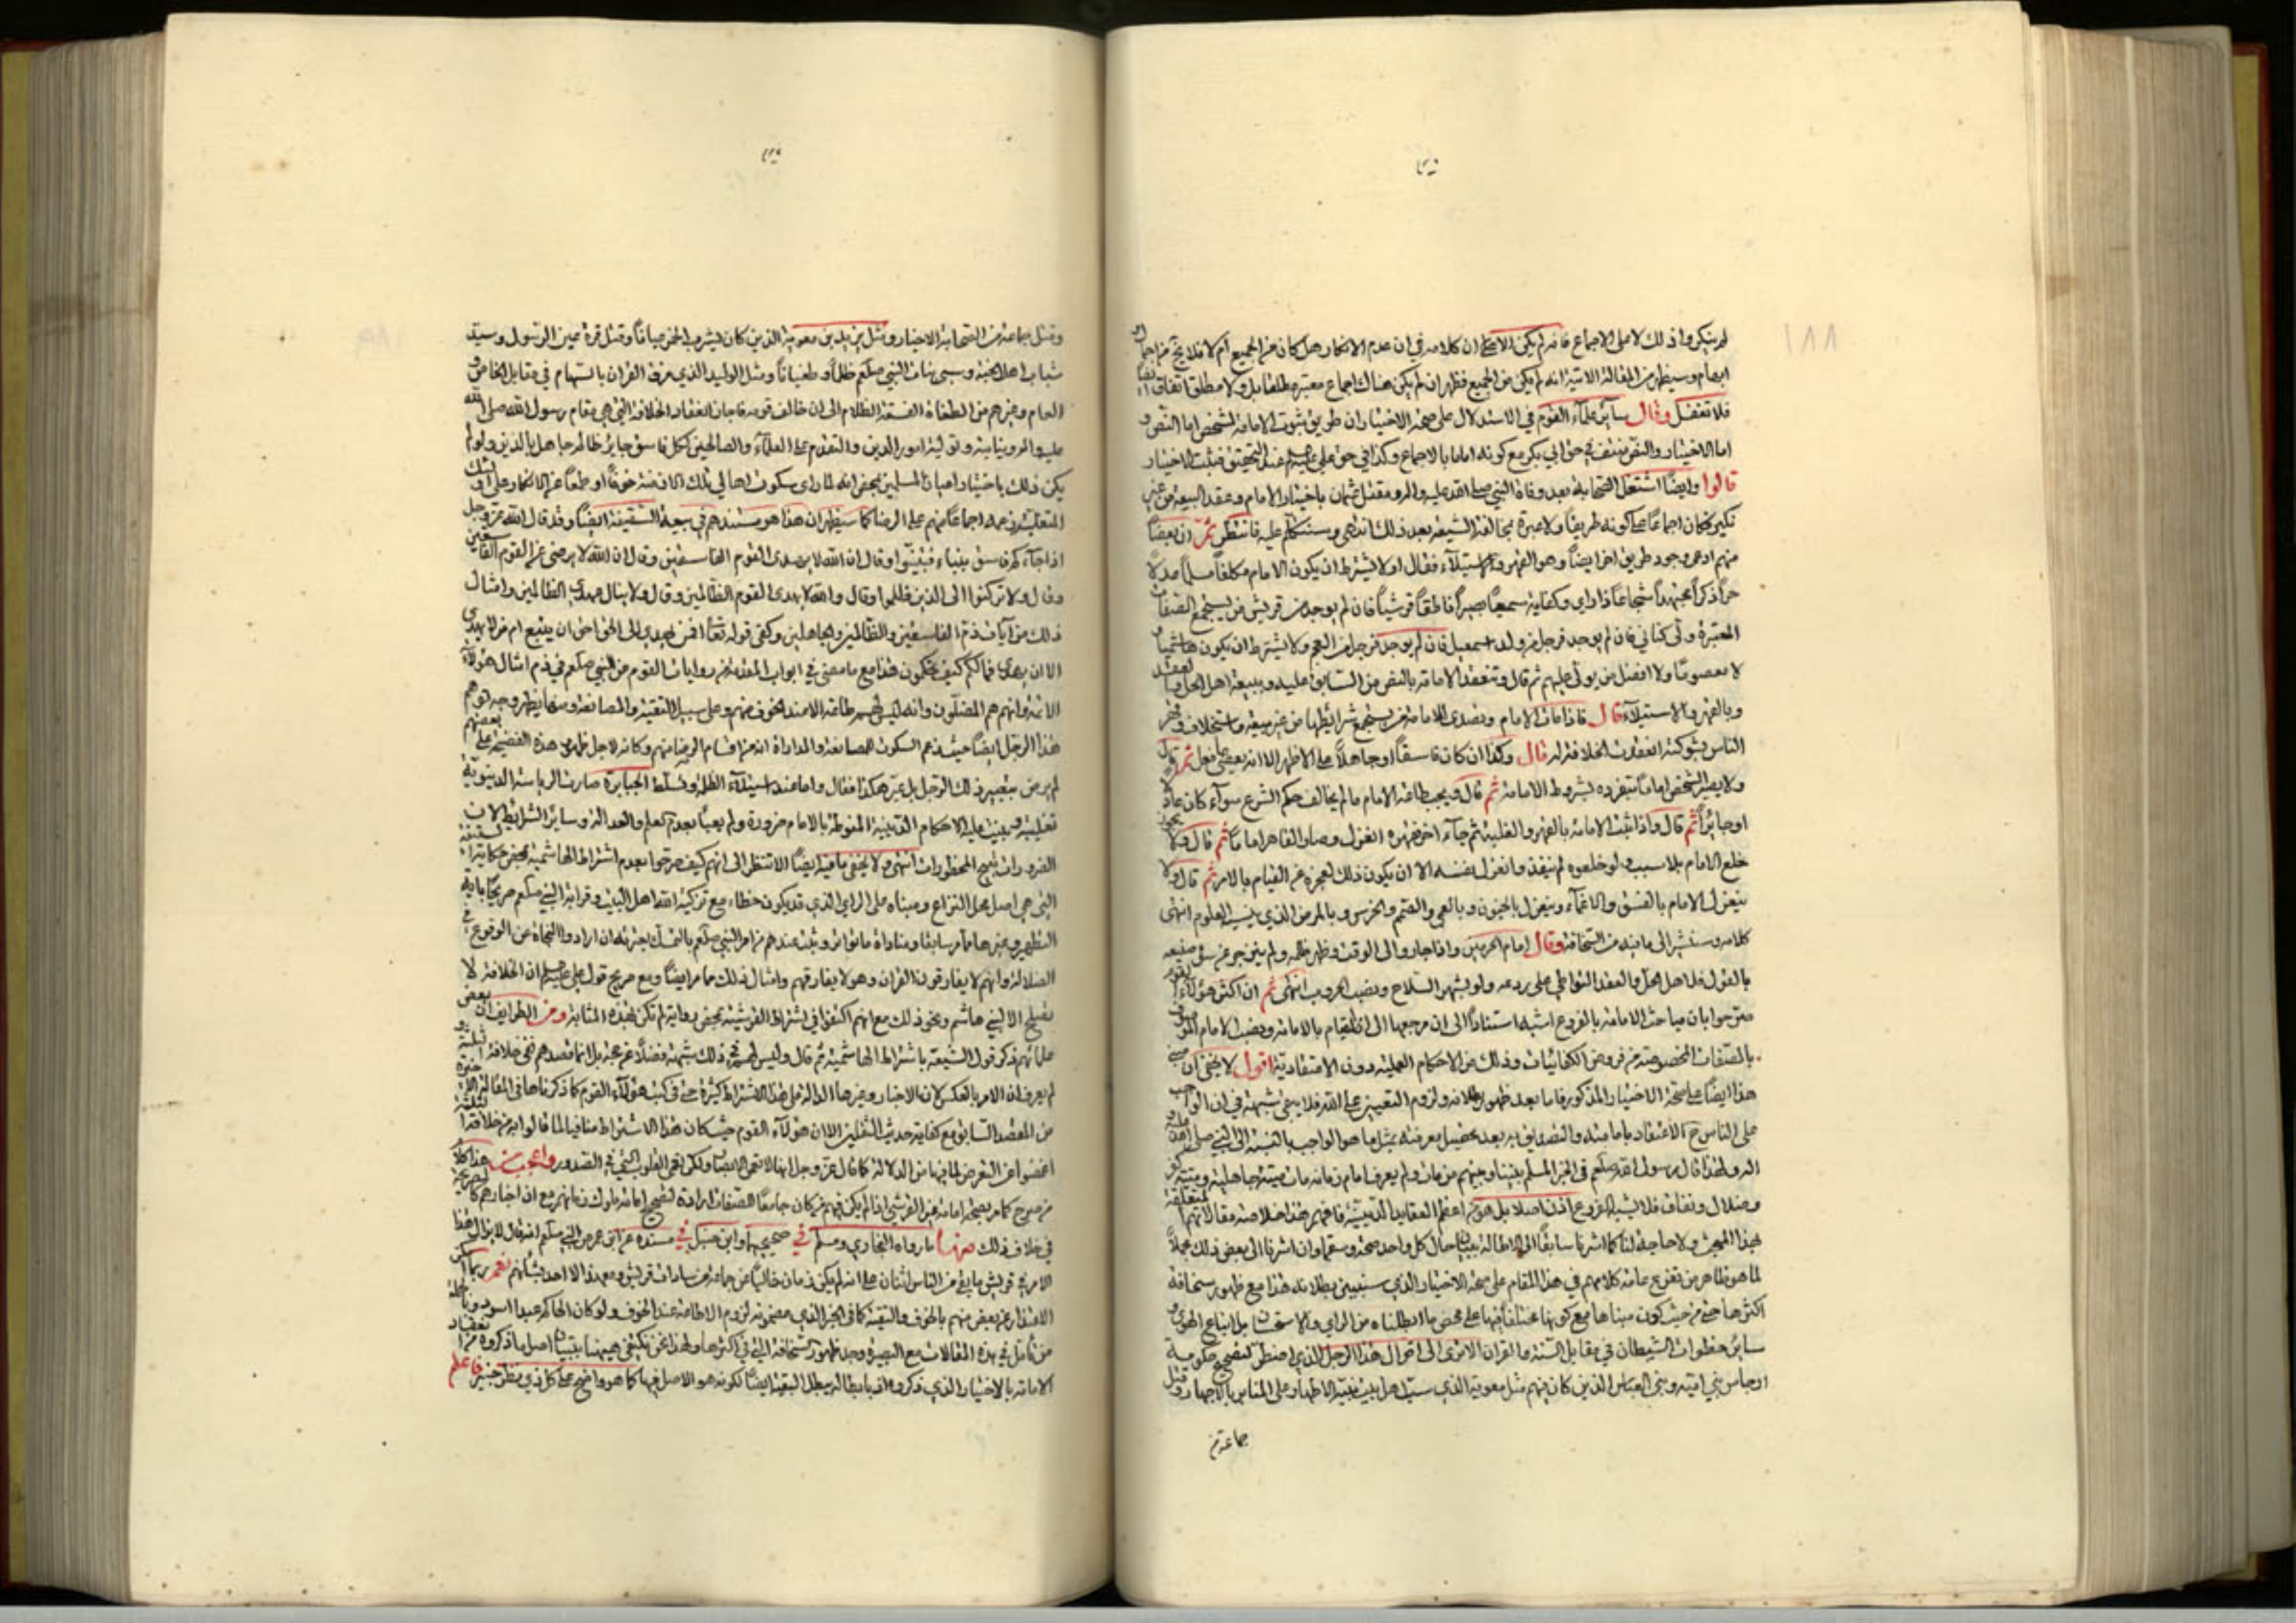 ١٨٨
لم ينكروا ذلك لا على الاجماع فانه لم يكن الا على ان كلامه في ان عدم الانكار هل كان من الجميع ام لا فلا يخ من اجمال
ابهام وسيظهر من المقالة الاتية انه لم يكن من الجميع فظهر ان لم يكن هناك اجماع معتبر مطلقا بل ولا مطلق اتفاق
فلا تغفل وقال سائر علماء القوم في الاستدلال على صحة الاختيار ان طريق ثبوت الامامة لشخص اما النص و
اما الاختيار والنص منتف في حق ابي بكر مع كونه اماما بالاجماع وكذا في حق علي عند التحقيق فثبت الاختيار
قالوا وايضا اشتغل الصحابة بعد وفاة النبي صلى الله عليه واله ومقتل عثمان باختيار الامام وعقد البيعة من غير
نكير فكان اجماعا على كونه طريقا ولا عبرة بمخالفة الشيعة بعد ذلك انتهى وسنتكلم عليه فانتظر ثم ان بعضا
منهم ادعى وجود طريق اخر ايضا وهو القهر والاستيلاء فقال اولا يشترط ان يكون الامام مكلفا مسلما عدلا
حرا ذكرا مجتهدا شجاعا ذا راي وكفاية سميعا بصيرا ناطقا قرشيا فان لم يوجد من قريش من يستجمع الصفات
المعتبرة ولي كناني فان لم يوجد فرجل من ولد اسمعيل فان لم يوجد فرجل من العجم ولا يشترط ان يكون هاشميا و
لا معصوما ولا افضل من يولى عليهم ثم قال وتنعقد الامامة بالنص من السابق عليه وببيعة اهل الحل والعقد
وبالقهر والاستيلاء قال فاذا مات الامام وتصدى للامامة من يستجمع شرائطها من غير بيعة واستخلاف وقهر
الناس بشوكته انعقدت الخلافة له قال وكذا ان كان فاسقا او جاهلا على الاظهر الا انه يعصي بما فعل ثم قال
ولا يصير الشخص اماما بتفرده بشروط الامامة ثم قال ويجب طاعة الامام ما لم يخالف حكم الشرع سواء كان عادلا
او جائرا ثم قال واذا ثبت الامامة بالقهر والغلبة ثم جاء اخر فقهره انعزل وصار القاهر اماما ثم قال ولا يجوز
خلع الامام بلا سبب ولو خلعوه لم ينفذ وان عزل نفسه الا ان يكون ذلك لعجزه عن القيام بالامر ثم قال ولا
ينعزل الامام بالفسق والاغماء وينعزل بالجنون وبالعمى والصمم والخرس وبالمرض الذي ينسيه العلوم انتهى
كلامه وسنشير الى ما فيه من السخافة وقال امام الحرمين واذا جار والي الوقت وظهر ظلمه ولم ينزجر عن سوء صنيعه
بالقول فلاهل الحل والعقد التواطي على ردعه ولو بشهر السلاح ونصب الحروب انتهى ثم ان اكثر هؤلاء القوم
صرحوا بان مباحث الامامة بالفروع اشبه استنادا الى ان مرجعها الى ان القيام بالامامة ونصب الامام الموصوف
بالصفات المخصوصة من فروض الكفائيات وذلك من الاحكام العملية دون الاعتقادية اقول لا يخفى ان
هذا ايضا على صحة الاختيار المذكور فاما بعد ظهور بطلانه ولزوم التعيين على الله فلا يبقى شبهة في ان الواجب
على الناس ح الاعتقاد بامامته والتصديق به بعد تحصيل معرفته بمثل ما هو الواجب بالنسبة الى النبي صلى الله عليه و
اله ولهذا قال رسول الله صلعم في الخبر المسلم بيننا وبينهم من مات ولم يعرف امام زمانه مات ميتة جاهلية وميتة كفر
وضلال ونفاق فلا يشبه الفروع اذن اصلا بل هو من اعظم العقايد الدينية فافهم هذا خلاصة مقالاتهم المتعلقة
بهذا المبحث ولا حاجة لنا كما اشرنا سابقا الى الاطالة ببيان حال كل واحد صحة وسقما وان اشرنا الى بعض ذلك مجملا
لما هو ظاهر من تفريع عامة كلامهم في هذا المقام على صحة الاختيار الذي سنبين بطلانه هذا مع ظهور سخافة
اكثرها حتى من حيث كون مبناها مع كونها مختلفا فيها على محض ما ابطلناه من الراي والاستحسان بل اتباع الهوى و
سائر خطوات الشيطان في مقابل السنة والقران الا ترى الى اقوال هذا الرجل الذي اضطر لتصحيح حكومة
ارجاس بني امية وبني العباس الذين كان فيهم مثل معوية الذي سب اهل بيت نبيه الاطهار على المنابر بالاجهار وقتل
جماعة من
وقتل جماعة من الصحابة الاخيار ومثل يزيد بن معوية الذي كان يشرب الخمر عيانا وقتل قرة عين الرسول وسيد
شباب اهل الجنة وسبى بنات النبي صلعم ظلما وطغيانا ومثل الوليد الذي مزق القران بالسهام في مقابل الخاص و
العام وغيرهم من الطغاة الفسقة الظلام الى ان خالف قومه فاجاز انعقاد الخلافة التي هي مقام رسول الله صلى الله
عليه واله ونيابته وتولية امور الدين والتقدم على العلماء والصالحين لكل فاسق جائر ظالم جاهل بالدين ولو لم
يكن ذلك باختيار اعيان المسلمين بمحض انه لما راى سكوت اهالي تلك الازمنة خوفا او طمعا عن الانكار على اولئك
المتغلبة زعمه اجماعا منهم على الرضا كما سيظهر ان هذا هو مستندهم في بيعة السقيفة ايضا وقد قال الله عز وجل
اذا جاءكم فاسق بنباء فتبينوا وقال ان الله لا يهدى القوم الفاسقين وقال ان الله لا يرضى عن القوم الفاسقين
وقال ولا تركنوا الى الذين ظلموا وقال والله لا يهدى القوم الظالمين وقال ولا ينال عهدي الظالمين وامثال
ذلك من آيات ذم الفاسقين والظالمين والجاهلين وكفى قوله تعا افمن يهدي الى الحق احق ان يتبع ام من لا يهدى
الا ان يهدى فما لكم كيف تحكمون هذا مع ما مضى في ابواب المقدمة من روايات القوم عن النبي صلعم في ذم امثال هؤلاء
الائمة وانهم هم المضلون وانه ليس لهم طاعة الا عند الخوف منهم وعلى سبيل التقية والمصانعة ومنها يظهر وجه توهم
هذا الرجل ايضا حيث زعم السكوت للمصانعة والمداراة انه من اقسام الرضا منهم وكانه لاجل ظهور هذه الفضيحة على بعضهم
لم يرض بتعبير ذلك الرجل بل عبر هكذا فقال واما عند استيلاء الظلمة وتسلط الجبابرة صارت الرياسة الدينوية
تغلبية وبنيت عليه الاحكام الدينية المنوطة بالامام ضرورة ولم يعبأ بعدم العلم والعدالة وسائر الشرائط لان
الضرورات تبيح المحظورات انتهى ولا يخفى ما فيه ايضا الا تنظر الى انهم كيف صرحوا بعدم اشتراط الهاشمية بمحض حكاية السقيفة
التي هي اصل محل النزاع ومبناه على الراي الذي قد يكون خطاء مع تزكية الله اهل البيت وقرابة النبي صلعم صريحا باية
التطهير وغيرها مما مر سابقا ومناداة ما تواتر وثبت عندهم من امر النبي صلعم بالتمسك بعترته ان ارادوا النجاة من الوقوع في
الضلالة وانهم لا يفارقون القران وهو لا يفارقهم وامثال ذلك مما مر ايضا ومع صريح قول علي ان الخلافة لا
يصلح الا لبني هاشم ونحو ذلك مع انهم اكتفوا في اشتراط القرشية بمحض رواية لم تكن بهذه المثابة ومن الطرايف ان بعض
علمائهم ذكر قول الشيعة باشتراط الهاشمية ثم قال وليس لهم في ذلك شبهة فضلا عن حجة بل انما قصدهم نفي خلافة الثلثة و
لم يعرف ان الامر بالعكس لان الاخبار وغيرها الدالة على هذا الاشتراط كثيرة حتى في كتب هؤلاء القوم كما ذكرناها في المقالة
من المقصد السابق مع كفاية حديث الثقلين الا ان هؤلاء القوم حيث كان هذا الاشتراط منافيا لما قالوا به من خلافة الثلثة
اغضوا عن التعرض لما فيها من الدلالة كما قال عز وجل انها لا تعمى الابصار ولكن تعمى القلوب التي في الصدور واعجب من هذا كله
من صرح كما مر بصحة امامة غير القرشي اذا لم يكن فيهم من كان جامعا للصفات ارادة لتصحيح امامة ملوك زمانهم مع ان اخبارهم كلها صريحة
في خلاف ذلك منها ما رواه البخاري ومسلم في صحيحيهما وابن حنبل في مسنده عن ابن عمر عن النبي صلعم انه قال لا يزال هذا
الامر في قريش ما بقي من الناس اثنان على انه لم يكن زمان خاليا عن جماعة من سادات قريش وبعد هذا الا احد يشابههم نعم ربما امكن
الاعتذار عن بعض منهم بالخوف والتقية كما في الخبر الذي مضمونه لزوم الاطاعة عند الخوف ولو كان الحاكم عبدا اسود وبالجملة
من تأمل في هذه المقالات مع البصيرة وجد ظهور السخافة التي في اكثرها ولهذا نحن نكتفي هيهنا بتبيان اصل ما ذكروه من انعقاد
الامامة بالاختيار الذي ذكروه اذ بابطاله يبطل البقية ايضا لكونه هو الاصل فيها كما هو واضح على كل ذي نظر خبير فاعلم